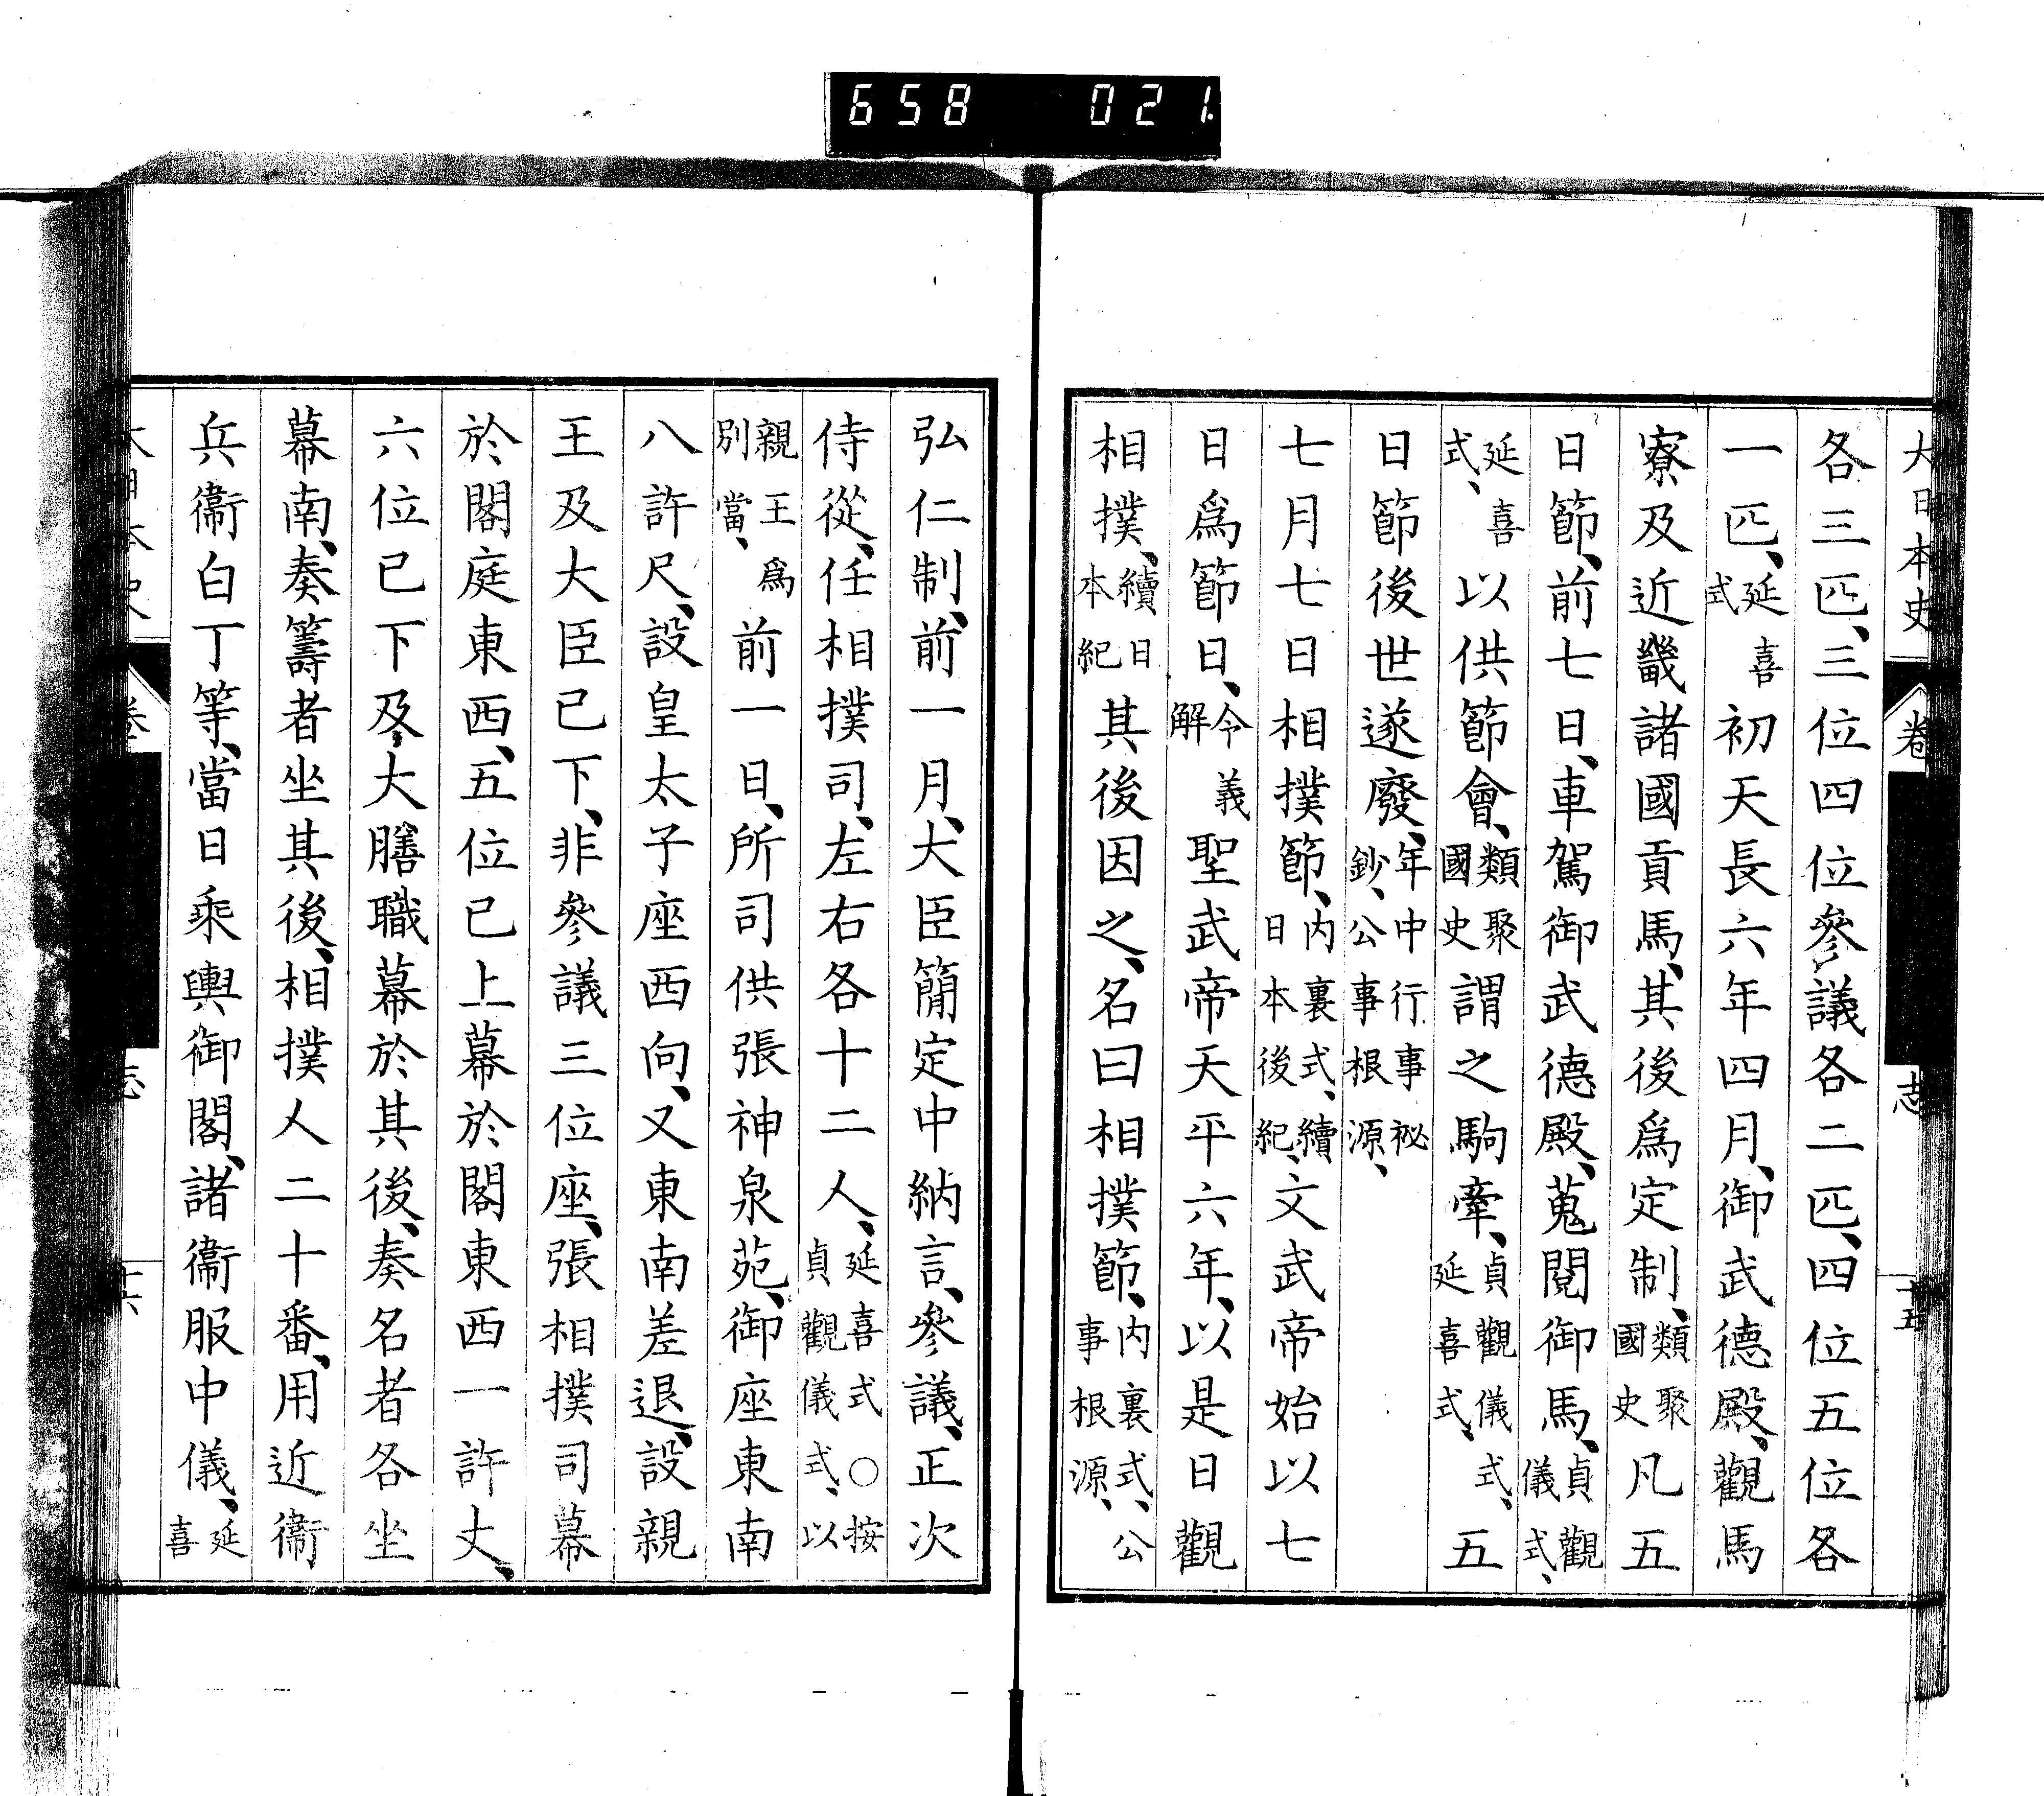 658 021
大日本史 卷 志 十五
各三匹、三位四位參議各二匹、四位五位各
一匹、延喜式初天長六年四月、御武德殿、觀馬
寮及近畿諸國貢馬、其後爲定制、類聚國史凡五
日節、前七日、車駕御武德殿、蒐閱御馬、貞觀儀式、
延喜式、以供節會、類聚國史謂之駒牽、貞觀儀式、延喜式、五
日節後世遂廢、年中行事祕鈔、公事根源、
七月七日相撲節、內裏式、續日本後紀、文武帝始以七
日爲節日、令義解聖武帝天平六年、以是日觀
相撲、續日本紀其後因之、名曰相撲節、內裏式、公事根源、
弘仁制、前一月、大臣簡定中納言、參議、正次
侍從、任相撲司、左右各十二人、延喜式○按貞觀儀式、以
親王爲別當、前一日、所司供張神泉苑、御座東南
八許尺、設皇太子座西向、又東南差退、設親
王及大臣已下、非參議三位座、張相撲司幕
於閣庭東西、五位已上幕於閣東西一許丈、
六位已下及大膳職幕於其後、奏名者各坐
幕南、奏籌者坐其後、相撲人二十番、用近衞
兵衞白丁等、當日乘輿御閣、諸衞服中儀、延喜
大日本史 卷 志 十六